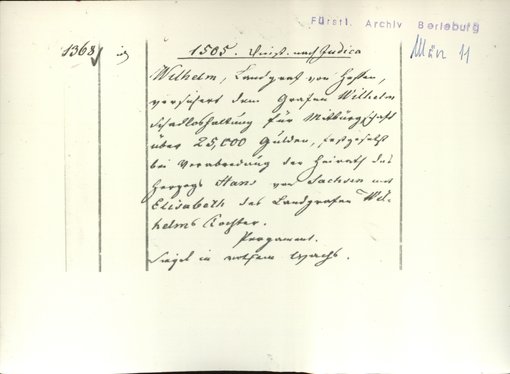 Fürstl. Archiv Berleburg
März 11
1368
1505. Dienst. nach Judica
Wilhelm, Landgraf von Hessen,
versichert dem Grafen Wilhelm
Schadloshaltung für Mitbürgschaft
über 25,000 Gulden, festgesetzt
bei Verabredung der Heirath des
Herzogs Hans von Sachsen mit
Elisabeth des Landgrafen Wil-
helms Tochter.
Pergament.
Siegel in rothem Wachs.